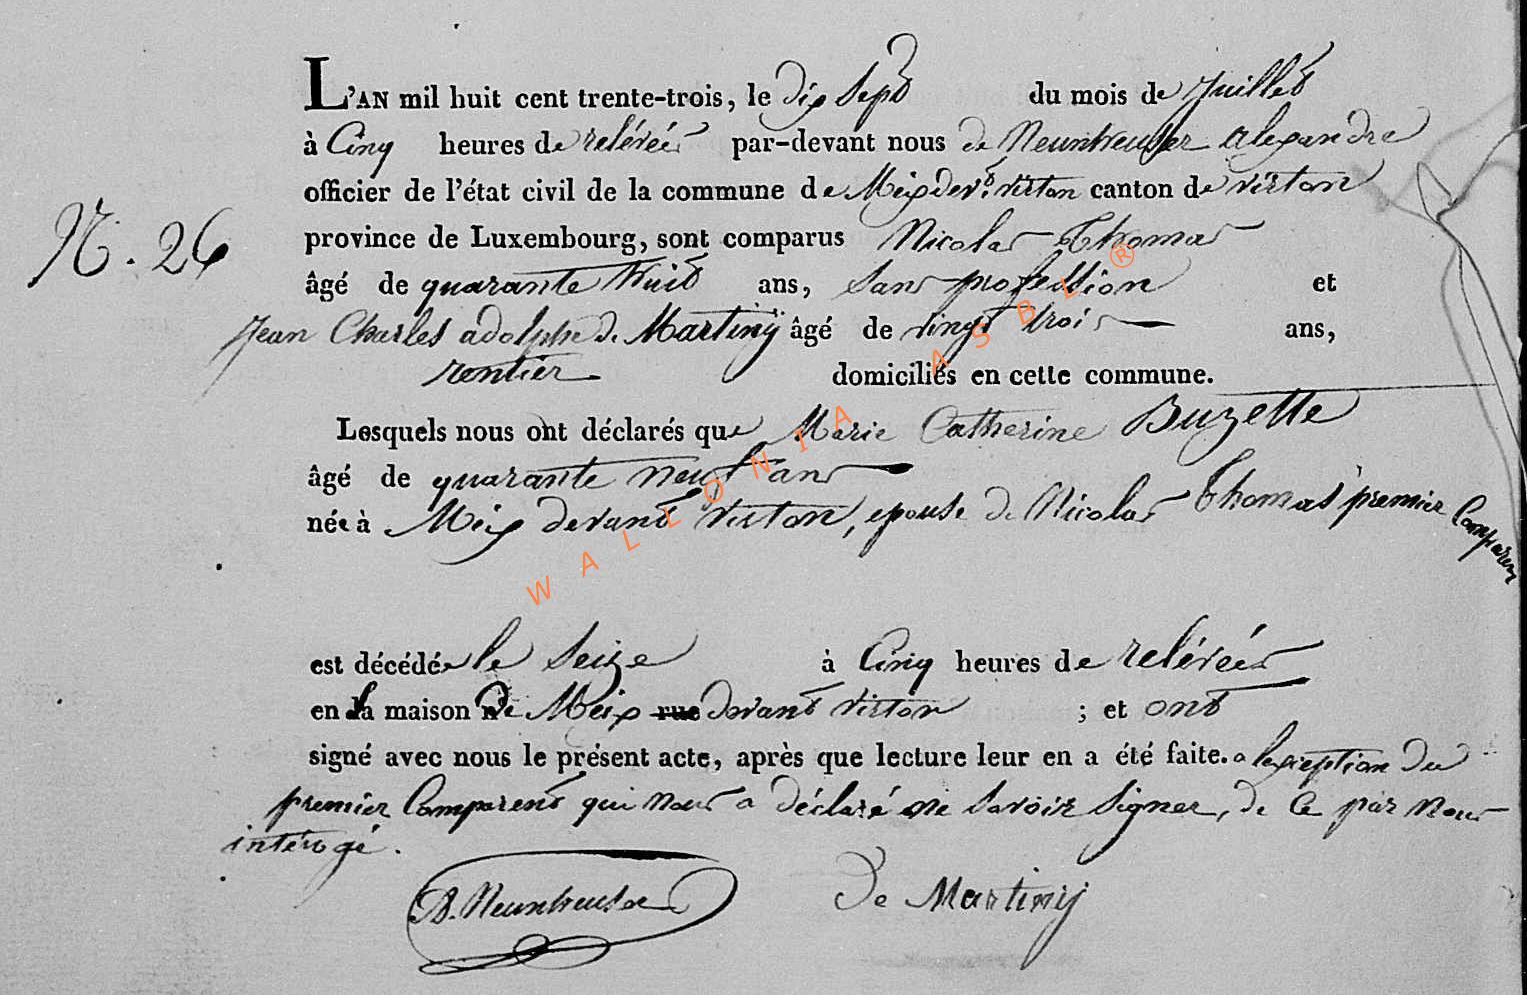 L'AN mil huit cent trente-trois, le dix Sept du mois de Juillet
à Cinq heures de relévées par-devant nous de Neunheuser alexandre
officier de l'état civil de la commune de Meix devt. virton canton de virton
N. 26
province de Luxembourg, sont comparus Nicolas Thomas
âgé de quarante huit ans, Sans profession et
Jean Charles adolphe de Martinÿ âgé de vingt trois ans,
rentier domiciliés en cette commune.
Lesquels nous ont déclarés que Marie Catherine Buzette
âgé de quarante neuf ans
née à Meix devant virton, epouse de Nicolas Thomas premier Comparent
est décédée le Seize à Cinq heures de relévées
en sa maison de Meix rue devant virton ; et ont
signé avec nous le présent acte, après que lecture leur en a été faite. a lexception du
premier Comparent qui nous a déclaré ne Savoir Signer, de Ce par nous
intérogé.
Neunheuser de Martiny
WALLONIA ASBL ®